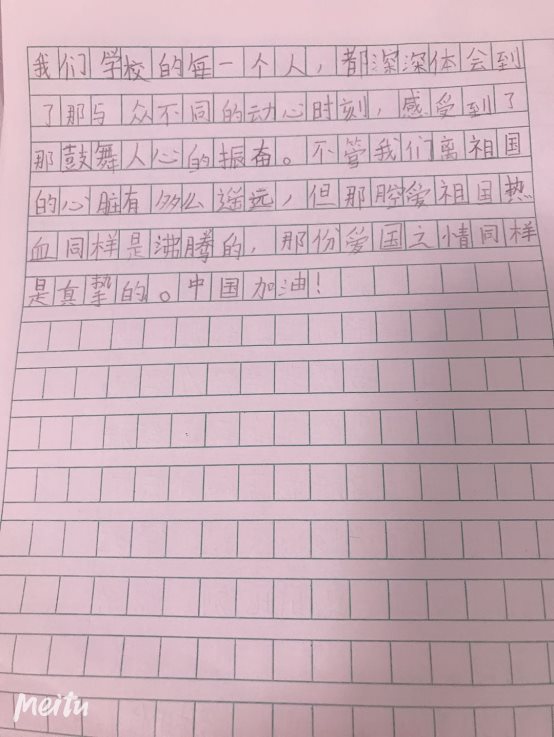 我们学校的每一个人，都深深体会到
了那与众不同的动心时刻，感受到了
那鼓舞人心的振奋。不管我们离祖国
的心脏有多么遥远，但那腔爱祖国热
血同样是沸腾的，那份爱国之情同样
是真挚的。中国加油！
Meitu